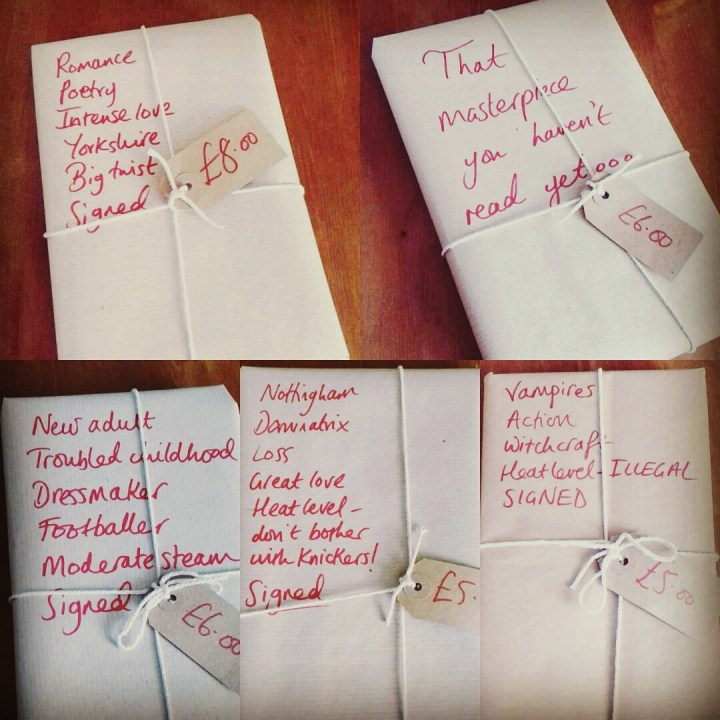 Romance
Poetry
Intense love
Yorkshire
Big twist
Signed
£8.00
That
masterpiece
you haven't
read yet...
£6.00
New adult
Troubled childhood
Dressmaker
Footballer
Moderate steam
Signed
£6.00
Nottingham
Dominatrix
Loss
Great love
Heat level -
don't bother
with Knickers!
Signed
£5.
Vampires
Action
Witchcraft
Heat level - ILLEGAL
SIGNED
£5.00